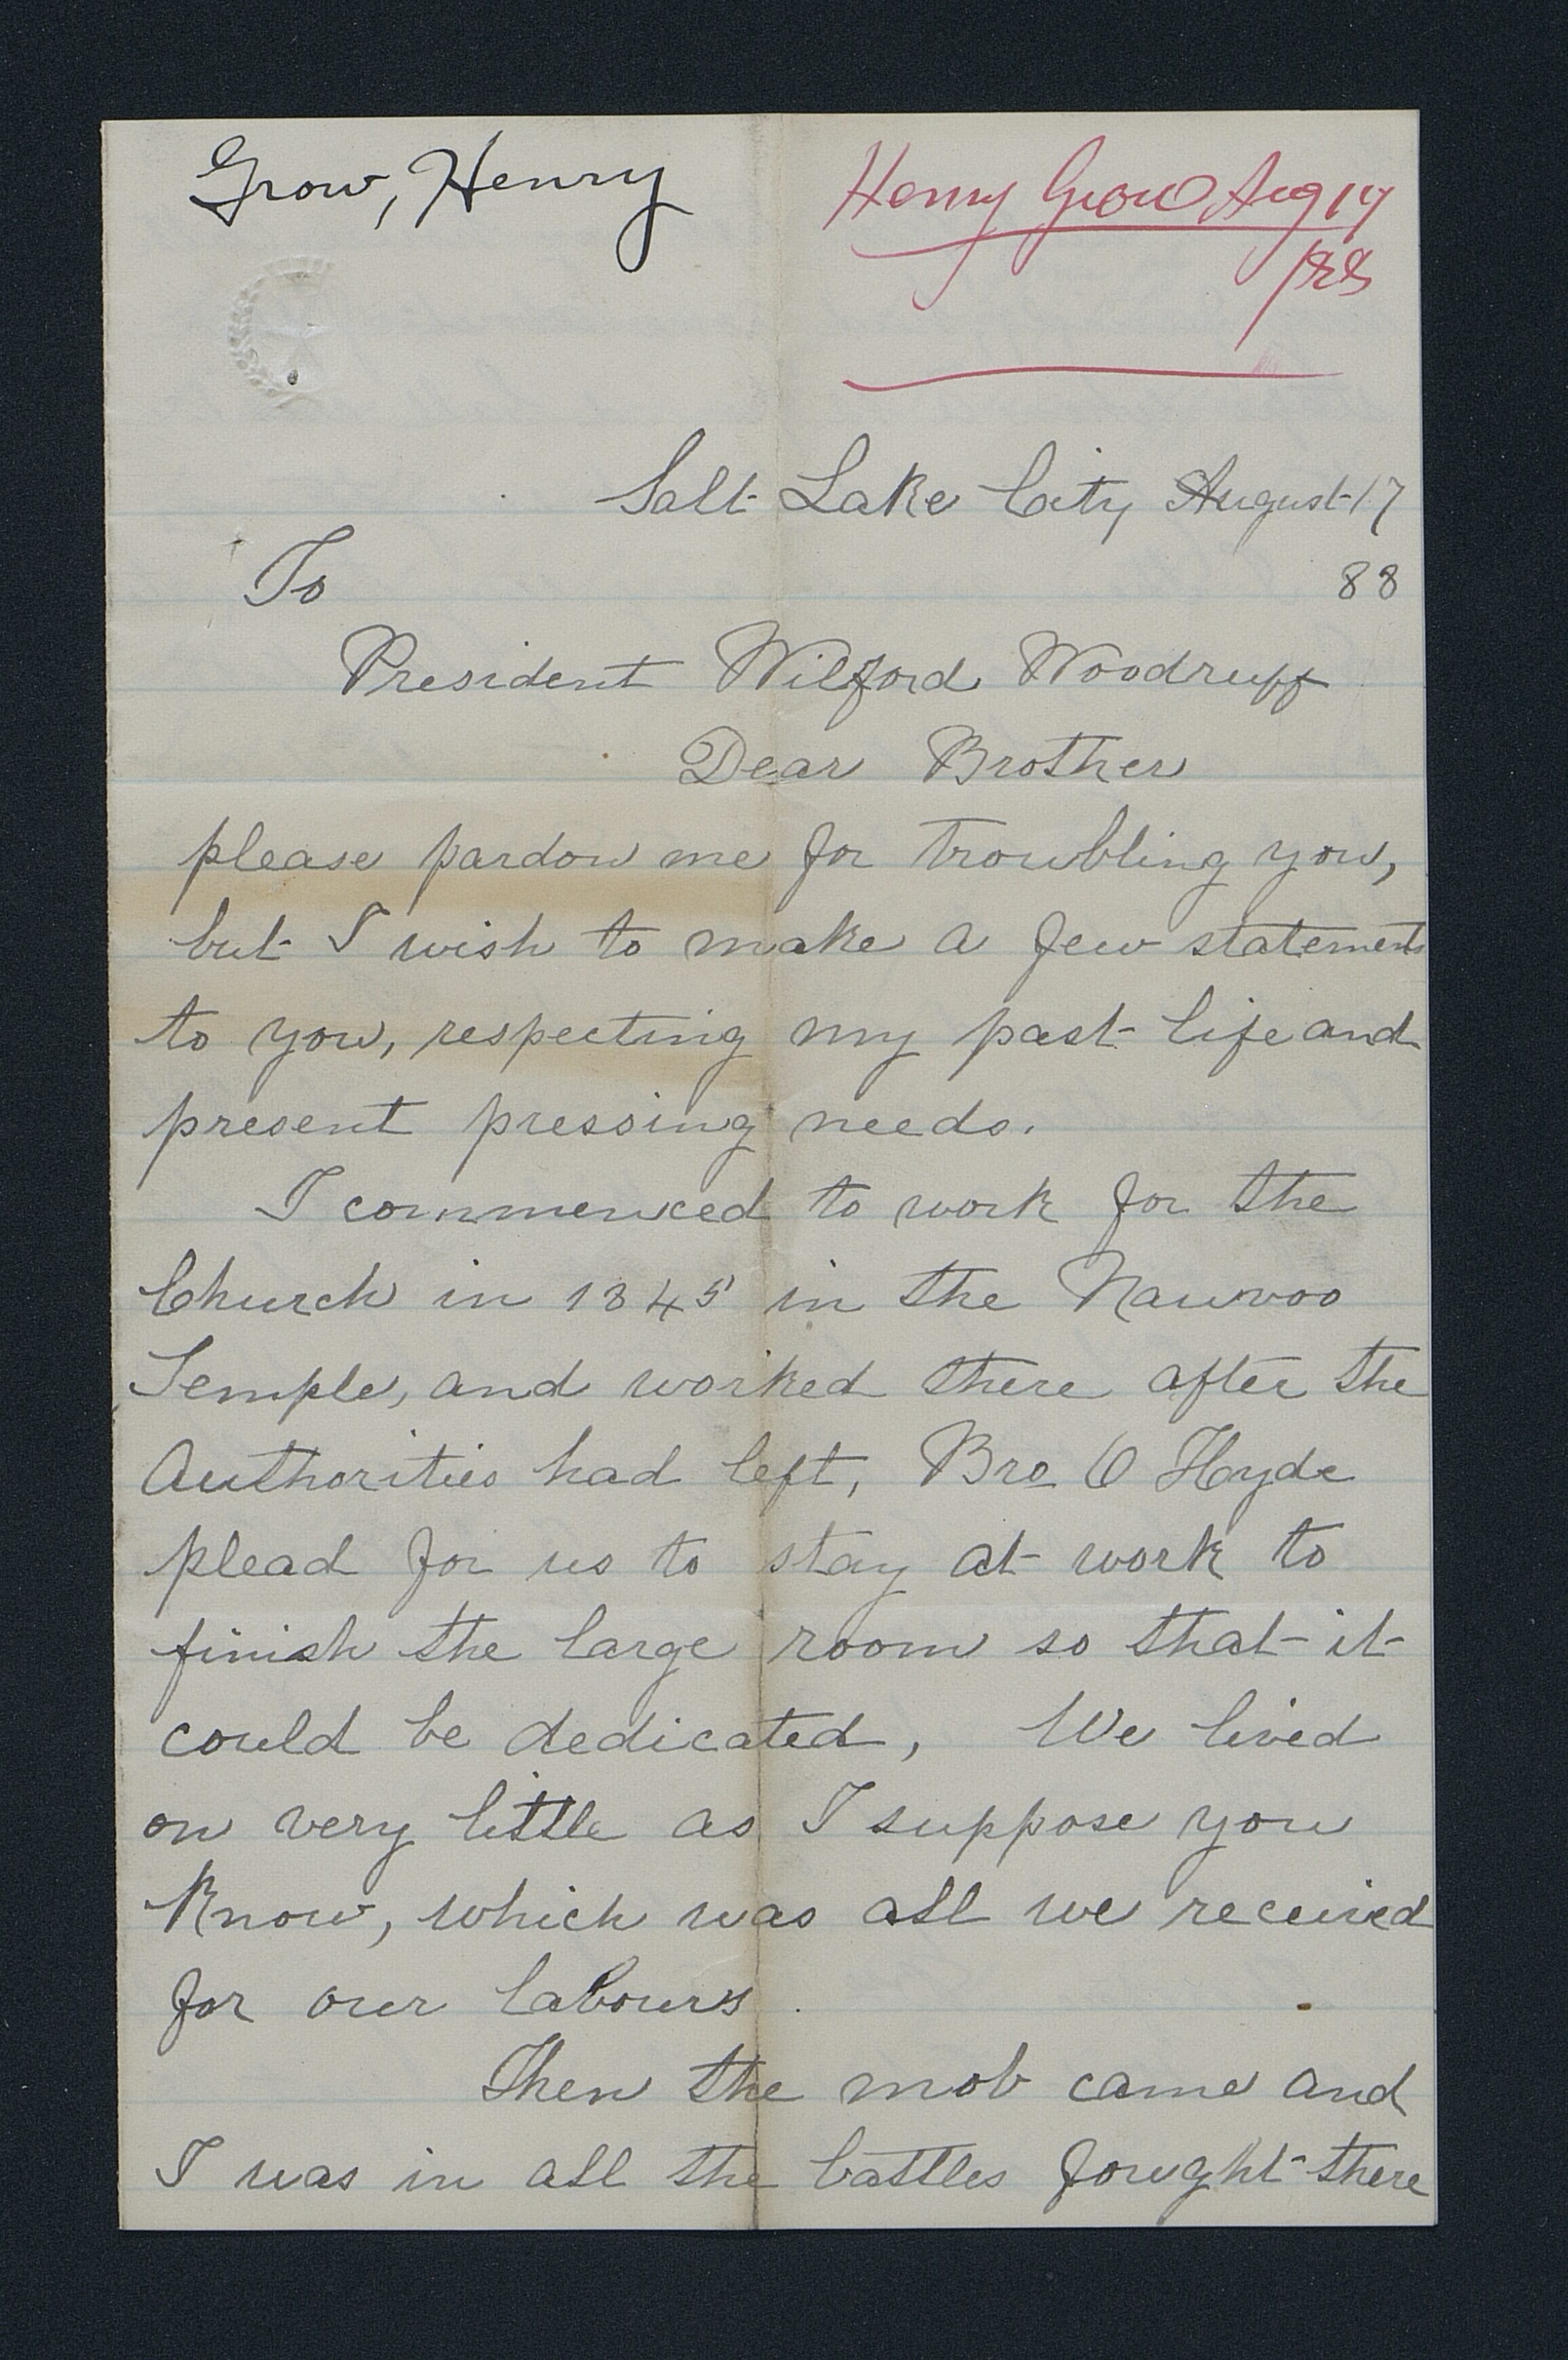 Grow, Henry
Henry Grow Aug 17
/88
Salt Lake City August 17
88
To
President Wilford Woodruff
Dear Brother
please pardon me for troubling you,
but I wish to make a few statements
to you, respecting my past life and
present pressing needs.
I commenced to work for the
Church in 1845 in the Nauvoo
Temple, and worked there after the
Authorities had left, Bro O Hyde
plead for us to stay at work to
finish the large room so that it
could be dedicated, We lived
on very little as I suppose you
know, which was all we received
for our labours.
Then the mob came and
I was in all the battles fought there